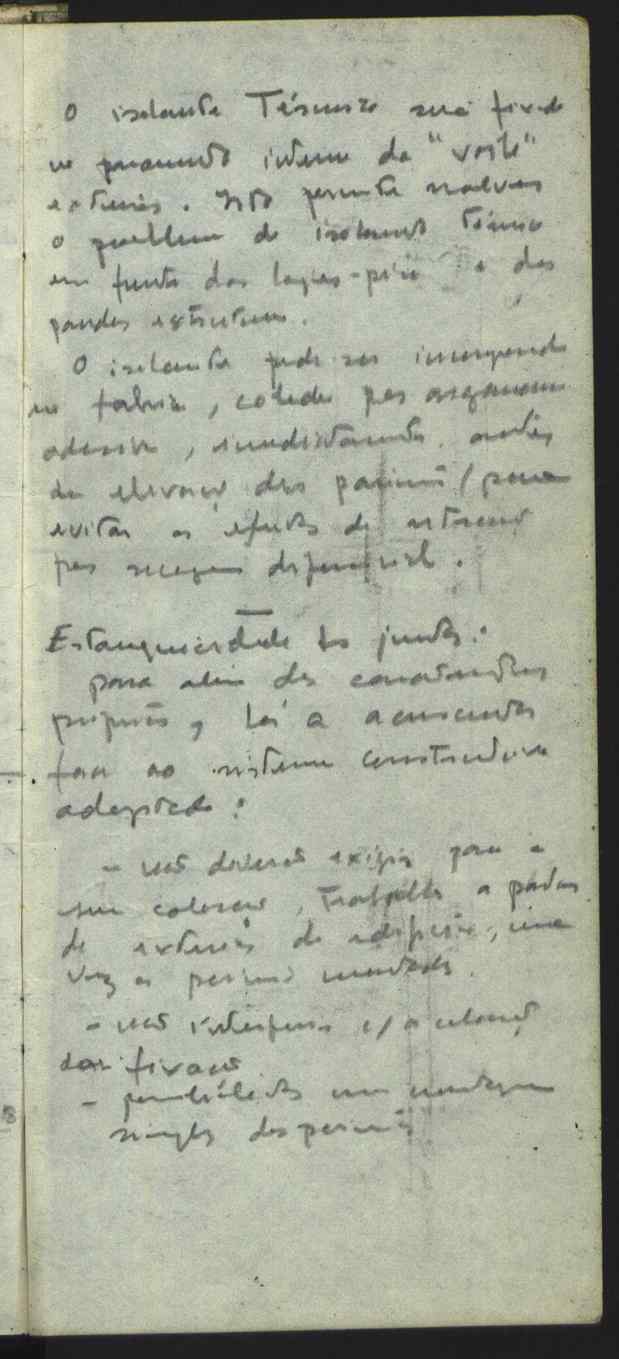 O isolante Térmico será fixado
no paramento interno da "voile"
exterior. Isto permite resolver
o problema do isolamento térmico
em frente das lages-piso e das
grandes estruturas.
O isolante pode ser incorporado
na fabrica, colado por
adesiva, imediatamente antes
da elevação dos paineis / para
evitar os efeitos de retracção
por secagem diferencial.
Estanqueicidade das juntas:
para alem das caracteristicas
proprias, há a acrescentar
face ao sistema construtivo
adoptado:
- não deverão exigir para a
sua colocação, trabalho a partir
do exterior do edificio, uma
vez os paineis montados.
- não interferir c/ a colocação
das fixações
- permitir uma montagem
simples dos paineis
8